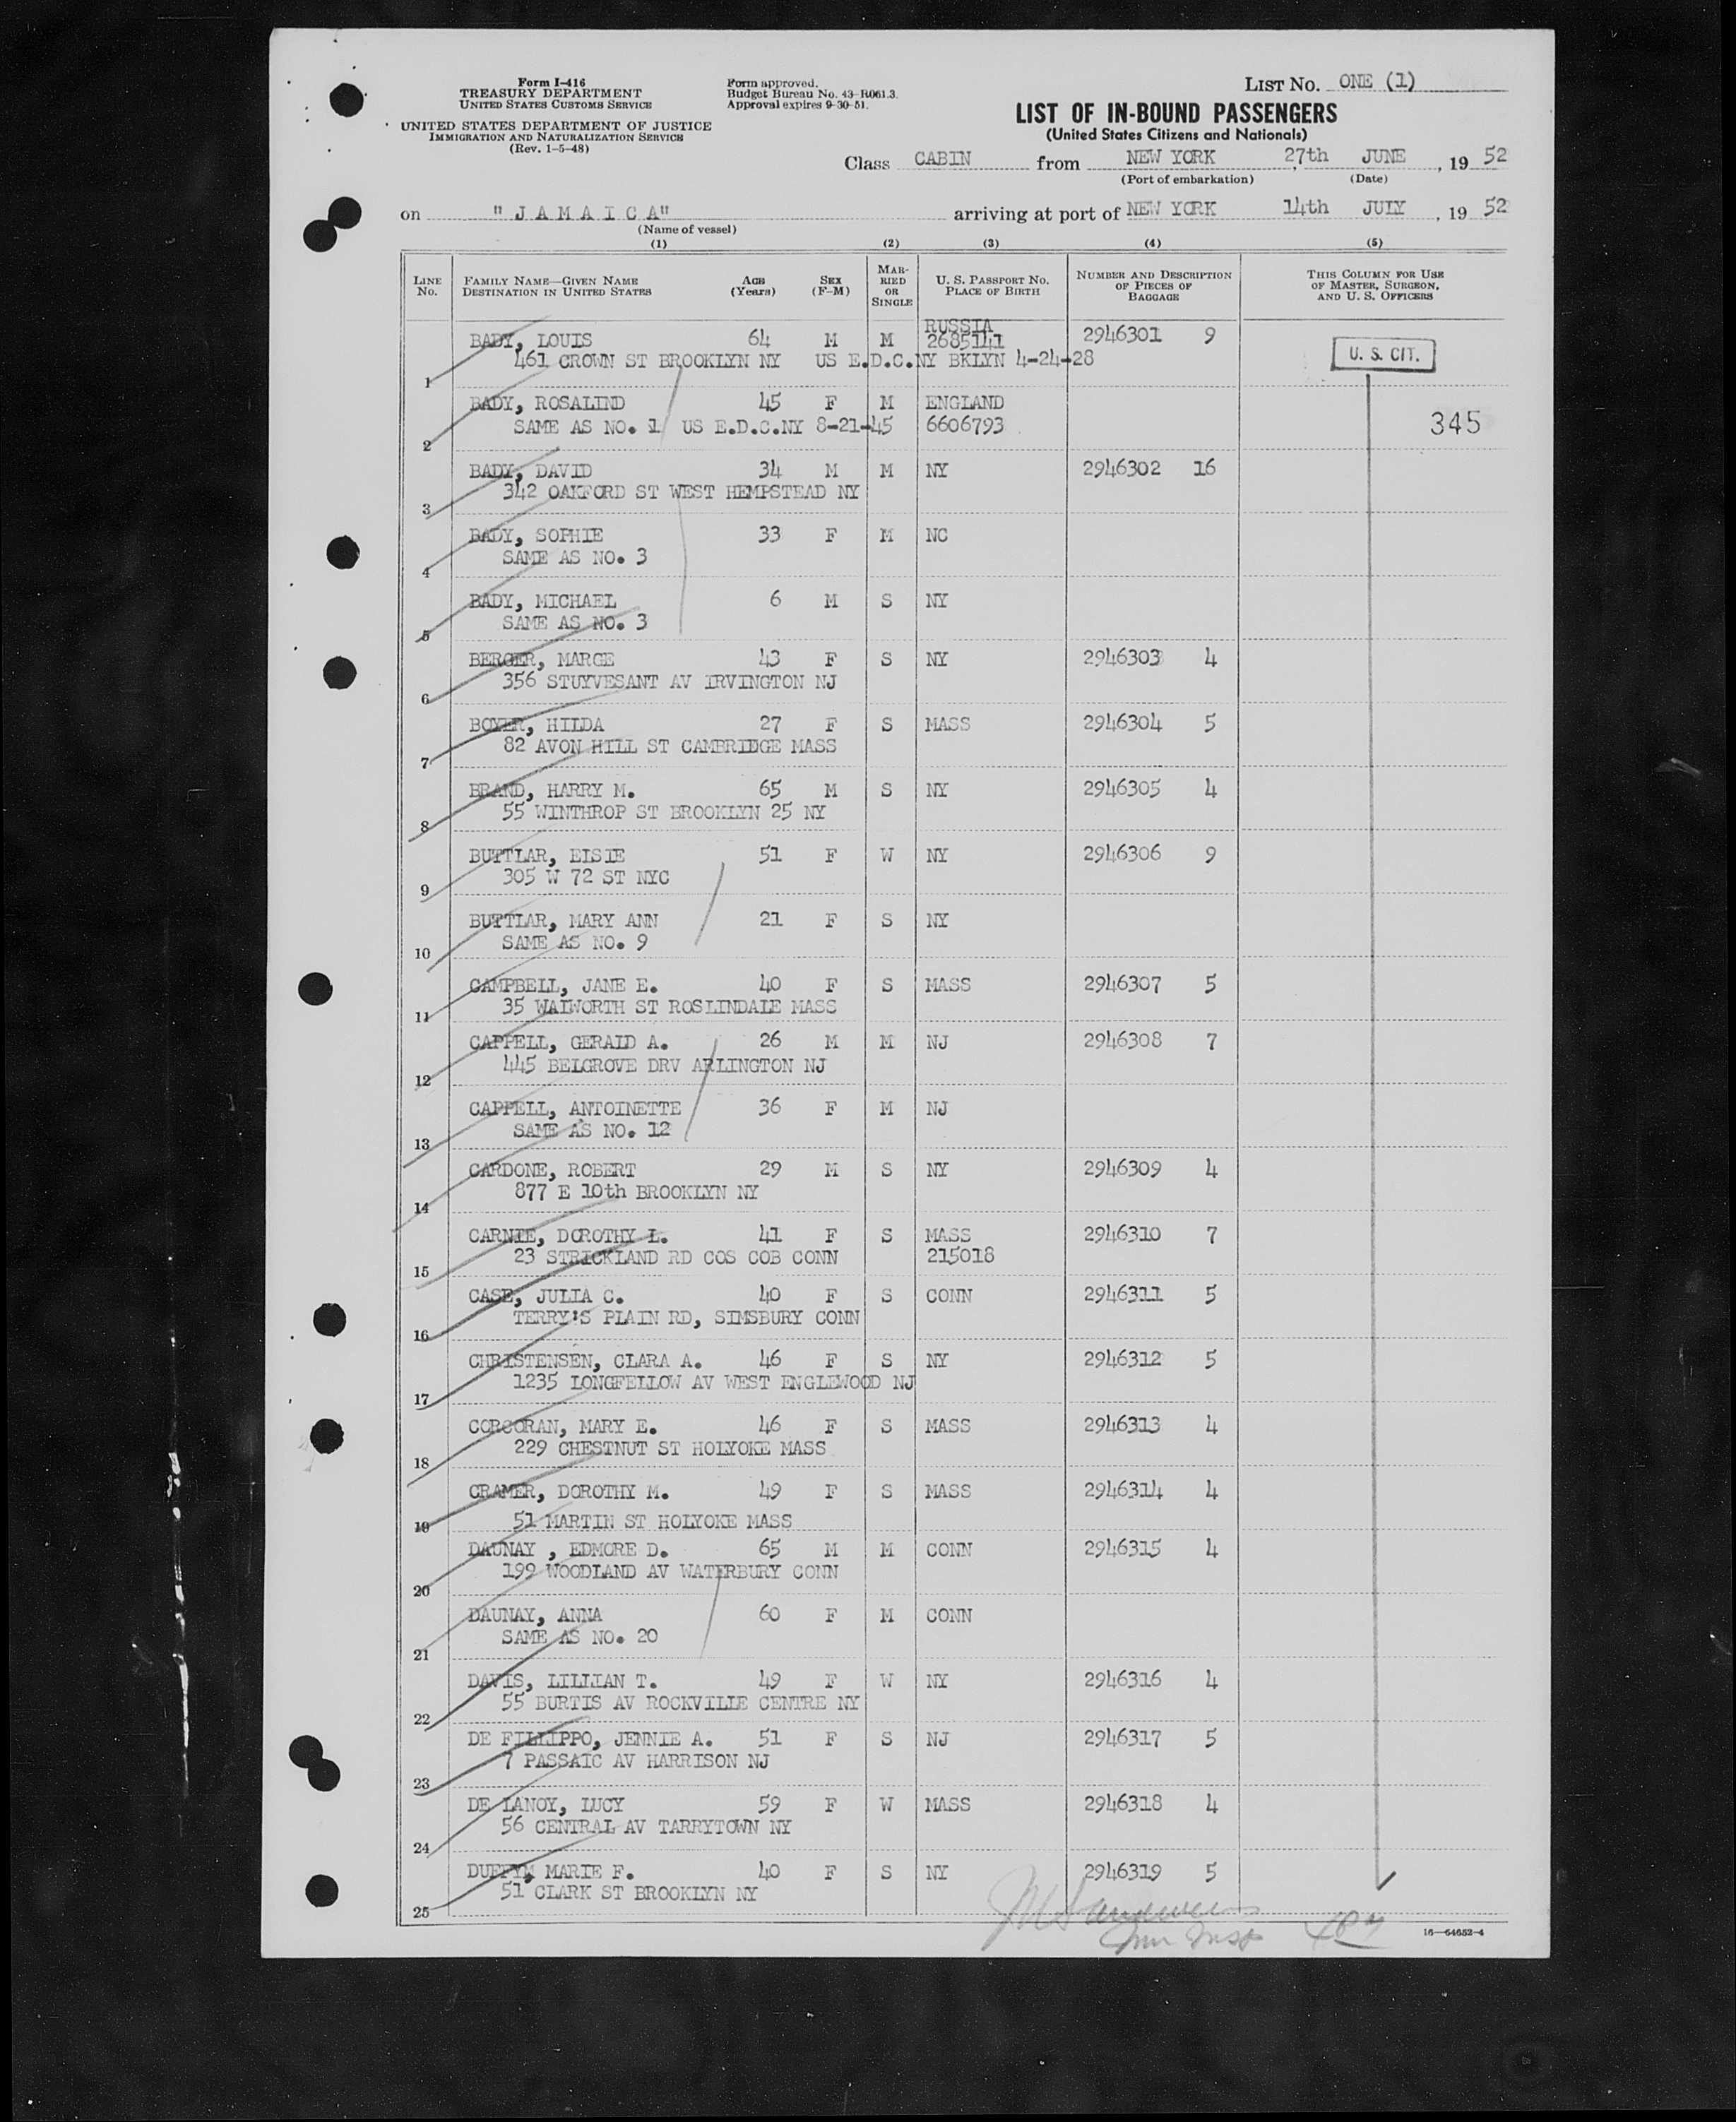 Form I-416
TREASURY DEPARTMENT
UNITED STATES CUSTOMS SERVICE
UNITED STATES DEPARTMENT OF JUSTICE
IMMIGRATION AND NATURALIZATION SERVICE
(Rev. 1-5-48)
Form approved.
Budget Bureau No. 43-R061.3.
Approval expires 9-30-51.
LIST NO. ONE (1)
LIST OF IN-BOUND PASSENGERS
(United States Citizens and Nationals)
Class CABIN from NEW YORK 27th JUNE , 19 52
(Port of embarkation) (Date)
on "J A M A I C A" arriving at port of NEW YORK 14th JULY , 19 52
(Name of vessel)
(1) (2) (3) (4) (5)
LINE No. FAMILY NAME—GIVEN NAME DESTINATION IN UNITED STATES AGE (Years) SEX (F-M) MARRIED OR SINGLE U. S. PASSPORT NO. PLACE OF BIRTH NUMBER AND DESCRIPTION OF PIECES OF BAGGAGE THIS COLUMN FOR USE OF MASTER, SURGEON, AND U. S. OFFICERS
RUSSIA
BADY, LOUIS 64 M M 2685141 2946301 9
U. S. CIT.
1 461 CROWN ST BROOKLYN NY US E.D.C.NY BKLYN 4-24-28
BADY, ROSALIND 45 F M ENGLAND
2 SAME AS NO. 1 US E.D.C.NY 8-21-45 6606793 345
BADY, DAVID 34 M M NY 2946302 16
3 342 OAKFORD ST WEST HEMPSTEAD NY
BADY, SOPHIE 33 F M NC
4 SAME AS NO. 3
BADY, MICHAEL 6 M S NY
5 SAME AS NO. 3
BERGER, MARGE 43 F S NY 2946303 4
6 356 STUYVESANT AV IRVINGTON NJ
BOYER, HILDA 27 F S MASS 2946304 5
7 82 AVON HILL ST CAMBRIDGE MASS
BRAND, HARRY M. 65 M S NY 2946305 4
8 55 WINTHROP ST BROOKLYN 25 NY
BUTTLAR, ELSIE 51 F W NY 2946306 9
9 305 W 72 ST NYC
BUTTLAR, MARY ANN 21 F S NY
10 SAME AS NO. 9
CAMPBELL, JANE E. 40 F S MASS 2946307 5
11 35 WALWORTH ST ROSLINDALE MASS
CAPPELL, GERALD A. 26 M M NJ 2946308 7
12 445 BELGROVE DRV ARLINGTON NJ
CAPPELL, ANTOINETTE 36 F M NJ
13 SAME AS NO. 12
CARDONE, ROBERT 29 M S NY 2946309 4
14 877 E 10th BROOKLYN NY
CARNIE, DOROTHY L. 41 F S MASS 2946310 7
15 23 STRICKLAND RD COS COB CONN 215018
CASE, JULIA C. 40 F S CONN 2946311 5
16 TERRY'S PLAIN RD, SIMSBURY CONN
CHRISTENSEN, CLARA A. 46 F S NY 2946312 5
17 1235 LONGFELLOW AV WEST ENGLEWOOD NJ
CORCORAN, MARY E. 46 F S MASS 2946313 4
18 229 CHESTNUT ST HOLYOKE MASS
CRAMER, DOROTHY M. 49 F S MASS 2946314 4
19 51 MARTIN ST HOLYOKE MASS
DAUNAY , EDMORE D. 65 M M CONN 2946315 4
20 199 WOODLAND AV WATERBURY CONN
DAUNAY, ANNA 60 F M CONN
21 SAME AS NO. 20
DAVIS, LILLIAN T. 49 F W NY 2946316 4
22 55 BURTIS AV ROCKVILLE CENTRE NY
DE FILLIPPO, JENNIE A. 51 F S NJ 2946317 5
23 7 PASSAIC AV HARRISON NJ
DE LANOY, LUCY 59 F W MASS 2946318 4
24 56 CENTRAL AV TARRYTOWN NY
DUFFY, MARIE F. 40 F S NY 2946319 5
25 51 CLARK ST BROOKLYN NY
Imm Insp
16—64652-4